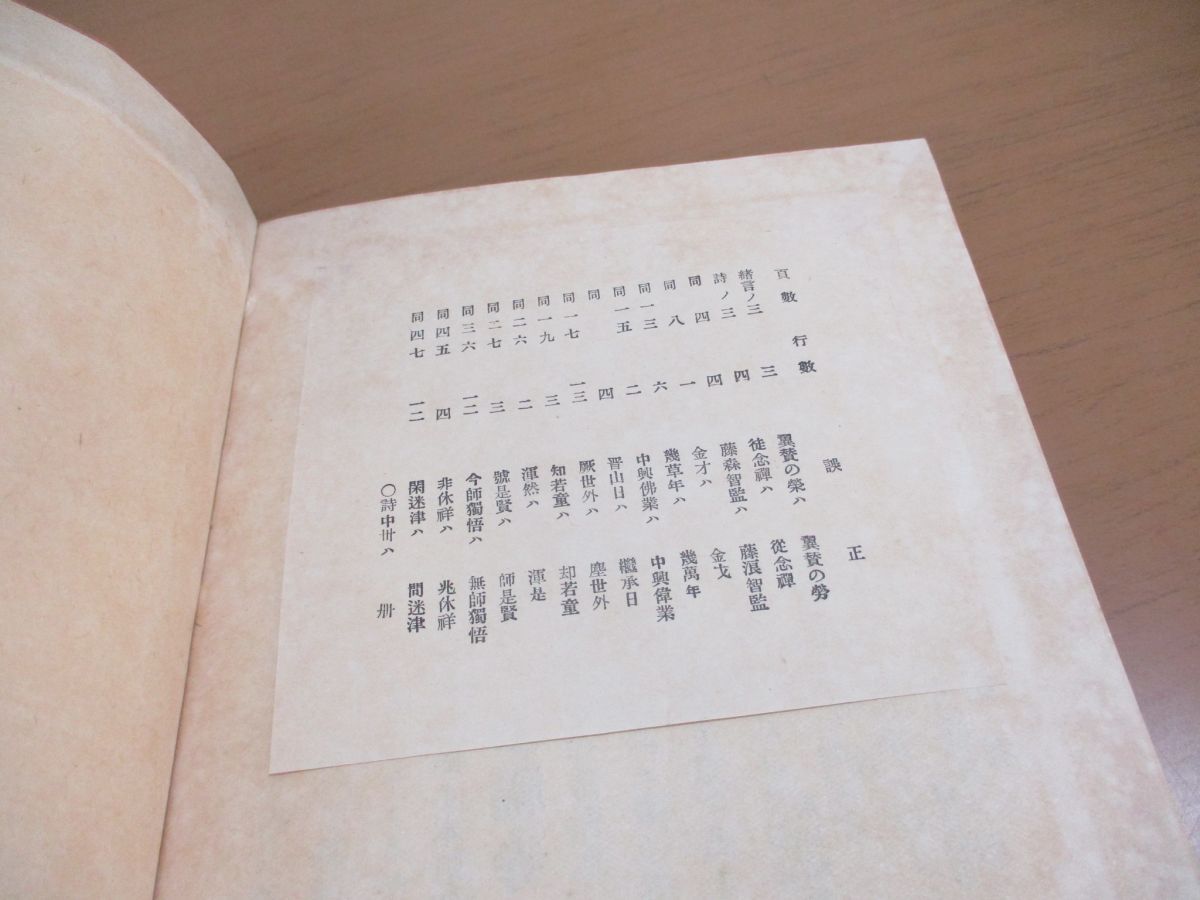 頁數 行數 誤 正
緒言ノ三 三 翼賛の榮ハ 翼賛の勞
詩ノ三 四 徒念禪ハ 從念禪
同四 四 藤森智監ハ 藤浪智監
同八 一 金才ハ 金戈
同一三 六 幾草年ハ 幾萬年
同一五 二 中興佛業ハ 中興偉業
同 四 晋山日ハ 繼承日
同一七 一三 厥世外ハ 塵世外
同一九 三 知若童ハ 却若童
同二六 二 渾然ハ 渾是
同二七 三 號是賢ハ 師是賢
同三六 一二 今師獨悟ハ 無師獨悟
同四五 四 非休祥ハ 兆休祥
同四七 一二 閑迷津ハ 問迷津
〇詩中卌ハ 册